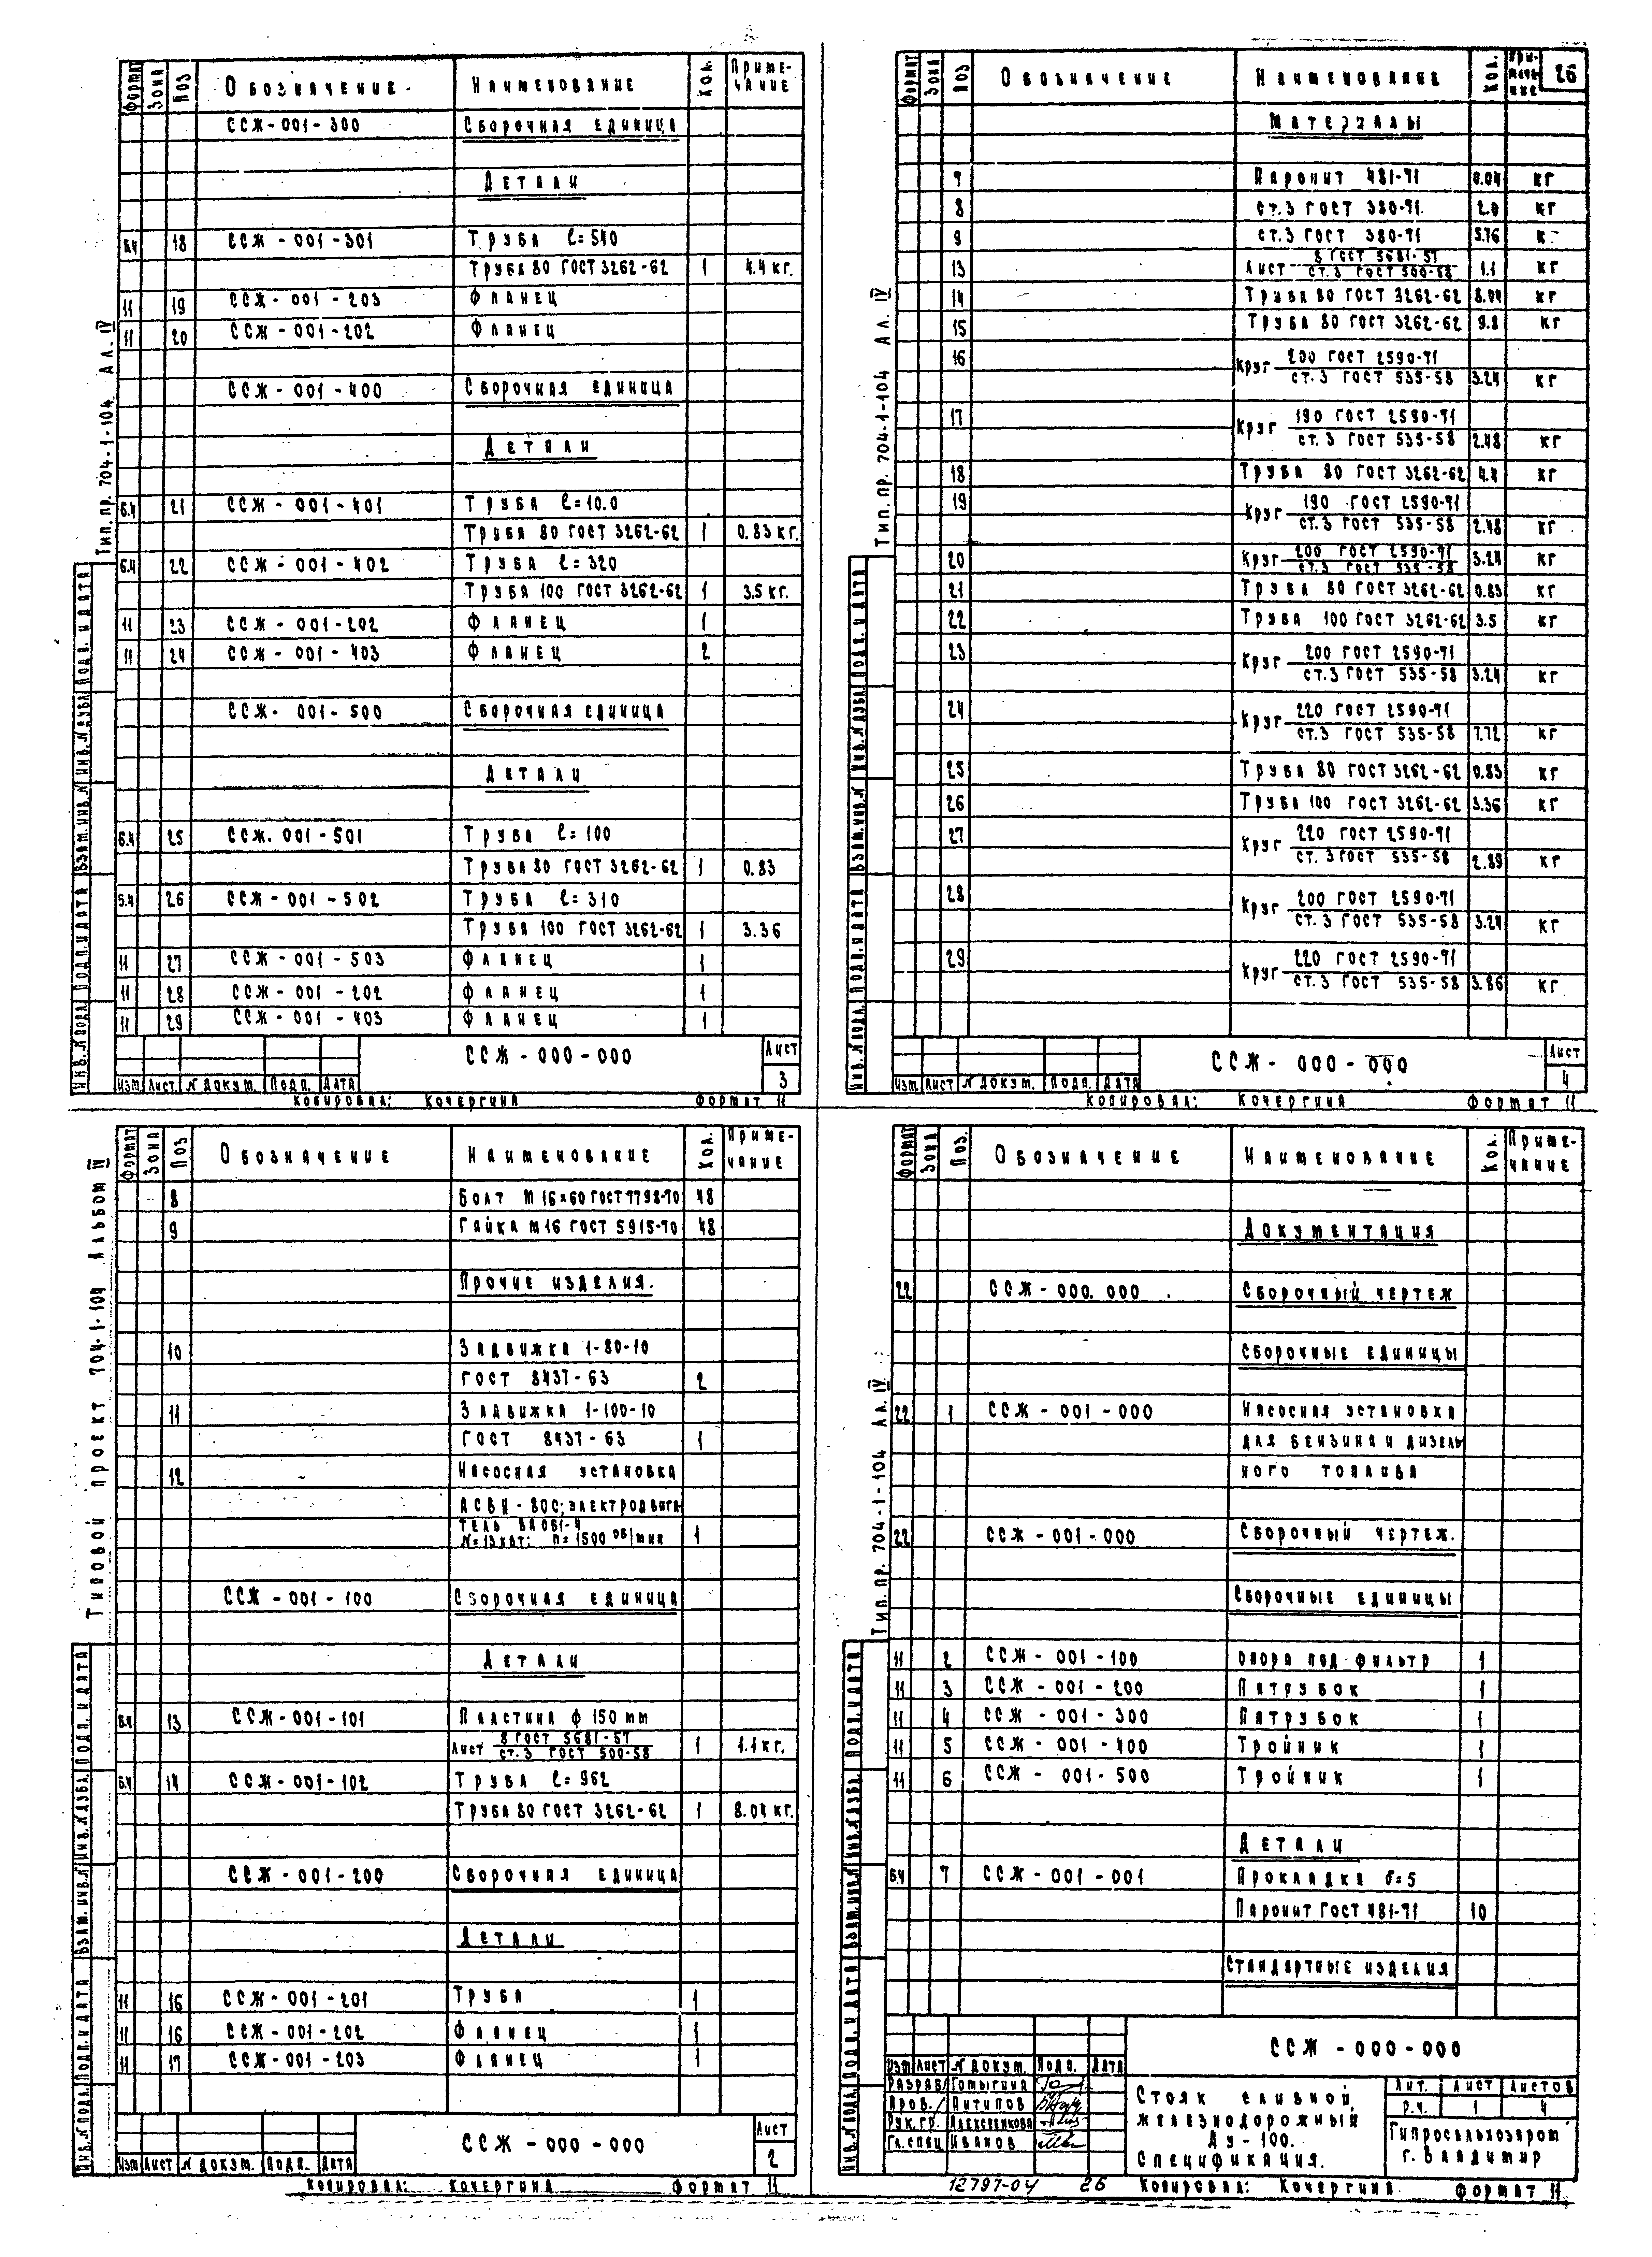 Формат Зона Поз Обозначение Наименование Кол. Приме-чание
ССЖ-001-300 Сборочная единица
Детали
Б.Ч 18 ССЖ-001-301 Труба ℓ=540
Труба 80 ГОСТ 3262-62 1 4.4 кг.
11 19 ССЖ-001-203 Фланец
11 20 ССЖ-001-202 Фланец
ССЖ-001-400 Сборочная единица
Детали
Б.Ч 21 ССЖ-001-401 Труба ℓ=10.0
Труба 80 ГОСТ 3262-62 1 0.83 кг.
Б.Ч 22 ССЖ-001-402 Труба ℓ=320
Труба 100 ГОСТ 3262-62 1 3.5 кг.
11 23 ССЖ-001-202 Фланец 1
11 24 ССЖ-001-403 Фланец 2
ССЖ-001-500 Сборочная единица
Детали
Б.Ч 25 ССЖ.001-501 Труба ℓ=100
Труба 80 ГОСТ 3262-62 1 0.83
Б.Ч 26 ССЖ-001-502 Труба ℓ=310
Труба 100 ГОСТ 3262-62 1 3.36
11 27 ССЖ-001-503 Фланец 1
11 28 ССЖ-001-202 Фланец 1
11 29 ССЖ-001-403 Фланец 1
ССЖ-000-000 Лист 3
Изм Лист. N докум. Подп. Дата
Копировал: Кочергина Формат 11
Тип. пр. 704-1-104 Ал. IV
Инв. N подл. Подп. и дата Взам. инв. N Инв. N дубл. Подп. и дата
26
Формат Зона Поз Обозначение Наименование Кол. При-меча-ние
Материалы
7 Паронит 481-71 0.04 кг
8 ст.3 ГОСТ 380-71. 2.0 кг
9 ст.3 ГОСТ 380-71 5.76 к
13 Лист 8 ГОСТ 5681-57 / ст.3 ГОСТ 500-58 1.1 кг
14 Труба 80 ГОСТ 3262-62 8.04 кг
15 Труба 80 ГОСТ 3262-62 9.8 кг
16 Круг 200 ГОСТ 2590-71 / ст.3 ГОСТ 535-58 3.24 кг
17 Круг 190 ГОСТ 2590-71 / ст.3 ГОСТ 535-58 2.48 кг
18 Труба 80 ГОСТ 3262-62 4.4 кг
19 Круг 190 ГОСТ 2590-71 / ст.3 ГОСТ 535-58 2.48 кг
20 Круг 200 ГОСТ 2590-71 / ст.3 ГОСТ 535-58 3.24 кг
21 Труба 80 ГОСТ 3262-62 0.83 кг
22 Труба 100 ГОСТ 3262-62 3.5 кг
23 Круг 200 ГОСТ 2590-71 / ст.3 ГОСТ 535-58 3.24 кг
24 Круг 220 ГОСТ 2590-71 / ст.3 ГОСТ 535-58 7.72 кг
25 Труба 80 ГОСТ 3262-62 0.83 кг
26 Труба 100 ГОСТ 3262-62 3.36 кг
27 Круг 220 ГОСТ 2590-71 / ст.3 ГОСТ 535-58 2.89 кг
28 Круг 200 ГОСТ 2590-71 / ст.3 ГОСТ 535-58 3.24 кг
29 Круг 220 ГОСТ 2590-71 / ст.3 ГОСТ 535-58 3.86 кг
ССЖ-000-000 Лист 4
Изм Лист N докум. Подп. Дата
Копировал: Кочергина Формат 11
Тип. пр. 704-1-104 Ал. IV
Инв. N подл. Подп. и дата Взам. инв. N Инв. N дубл. Подп. и дата
Формат Зона Поз Обозначение Наименование Кол. Приме-чание
8 Болт М16×60 ГОСТ 7798-70 48
9 Гайка М16 ГОСТ 5915-70 48
Прочие изделия.
10 Задвижка 1-80-10
ГОСТ 8437-63 2
11 Задвижка 1-100-10
ГОСТ 8437-63 1
12 Насосная установка
АСВН-80С; электродвига-
тель ВАО61-4
N=13 кВт: n=1500 об/мин 1
ССЖ-001-100 Сборочная единица
Детали
Б.Ч 13 ССЖ-001-101 Пластина ф 150 мм
Лист 8 ГОСТ 5681-57 / ст.3 ГОСТ 500-58 1 1.1 кг.
Б.Ч 14 ССЖ-001-102 Труба ℓ=962
Труба 80 ГОСТ 3262-62 1 8.04 кг.
ССЖ-001-200 Сборочная единица
Детали
11 16 ССЖ-001-201 Труба 1
11 16 ССЖ-001-202 Фланец 1
11 17 ССЖ-001-203 Фланец 1
ССЖ-000-000 Лист 2
Изм Лист N докум. Подп. Дата
Копировал: Кочергина Формат 11
Типовой проект 704-1-104 Альбом IV
Инв. N подл. Подп. и дата Взам. инв. N Инв. N дубл. Подп. и дата
Формат Зона Поз. Обозначение Наименование Кол. Приме-чание
Документация
22 ССЖ-000.000 Сборочный чертеж
Сборочные единицы
22 1 ССЖ-001-000 Насосная установка
для бензина и дизель
ного топлива
22 ССЖ-001-000 Сборочный чертеж.
Сборочные единицы
11 2 ССЖ-001-100 опора под фильтр 1
11 3 ССЖ-001-200 Патрубок 1
11 4 ССЖ-001-300 Патрубок 1
11 5 ССЖ-001-400 Тройник 1
11 6 ССЖ-001-500 Тройник 1
Детали
Б.Ч 7 ССЖ-001-001 Прокладка б=5
Паронит ГОСТ 481-71 10
Стандартные изделия
ССЖ-000-000
Изм Лист N докум. Подп. Дата
Разраб. Томыгина
Пров. Антипов
Рук. гр. Алексеенкова
Гл. спец Иванов
Стояк сливной
железнодорожный
Ду-100.
Спецификация.
Лит. Лист Листов
Р.Ч. 1 4
Гипросельхозпром
г. Владимир
12797-04 26 Копировал: Кочергина Формат 11
Тип. пр. 704-1-104 Ал. IV
Инв. N подл. Подп. и дата Взам. инв. N Инв. N дубл. Подп. и дата